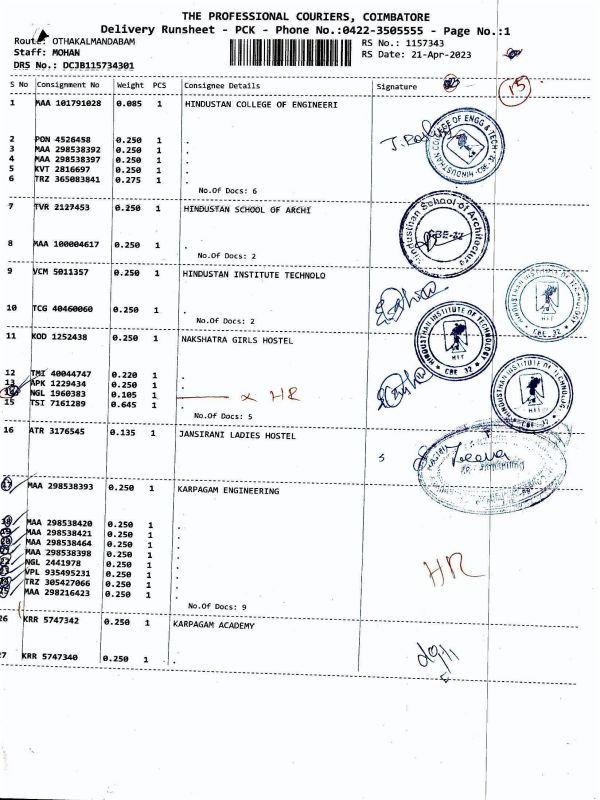 THE PROFESSIONAL COURIERS, COIMBATORE
Delivery Runsheet - PCK - Phone No.:0422-3505555 - Page No.:1
Route: OTHAKALMANDABAM RS No.: 1157343
Staff: MOHAN RS Date: 21-Apr-2023
DRS No.: DCJB115734301
S No Consignment No Weight PCS Consignee Details Signature 15
1 MAA 101791028 0.085 1 HINDUSTAN COLLEGE OF ENGINEERI
2 PON 4526458 0.250 1 .
3 MAA 298538392 0.250 1 .
4 MAA 298538397 0.250 1 .
5 KVT 2816697 0.250 1 .
6 TRZ 365083841 0.275 1 .
No.Of Docs: 6
HINDUSTHAN COLLEGE OF ENGG & TECH
7 TVR 2127453 0.250 1 HINDUSTAN SCHOOL OF ARCHI
8 MAA 100004617 0.250 1 .
No.Of Docs: 2
Hindusthan School of Architecture
CBE-32
9 VCM 5011357 0.250 1 HINDUSTAN INSTITUTE TECHNOLO
10 TCG 40460060 0.250 1 .
No.Of Docs: 2
HINDUSTHAN INSTITUTE OF TECHNOLOGY
HIT
CBE - 32
HINDUSTHAN INSTITUTE OF TECHNOLOGY
HIT
CBE - 32
11 KOD 1252438 0.250 1 NAKSHATRA GIRLS HOSTEL
12 TMI 40044747 0.220 1 .
13 APK 1229434 0.250 1 .
14 NGL 1960383 0.105 1 x HR
15 TSI 7161289 0.645 1 .
No.Of Docs: 5
HINDUSTHAN INSTITUTE OF TECHNOLOGY
HIT
CBE - 32
16 ATR 3176545 0.135 1 JANSIRANI LADIES HOSTEL
17 MAA 298538393 0.250 1 KARPAGAM ENGINEERING
18 MAA 298538420 0.250 1 .
19 MAA 298538421 0.250 1 .
20 MAA 298538464 0.250 1 .
21 MAA 298538398 0.250 1 .
22 NGL 2441978 0.250 1 .
23 VPL 935495231 0.250 1 .
24 TRZ 305427066 0.250 1 .
25 MAA 298216423 0.250 1 .
HR
No.Of Docs: 9
26 KRR 5747342 0.250 1 KARPAGAM ACADEMY
27 KRR 5747340 0.250 1 .